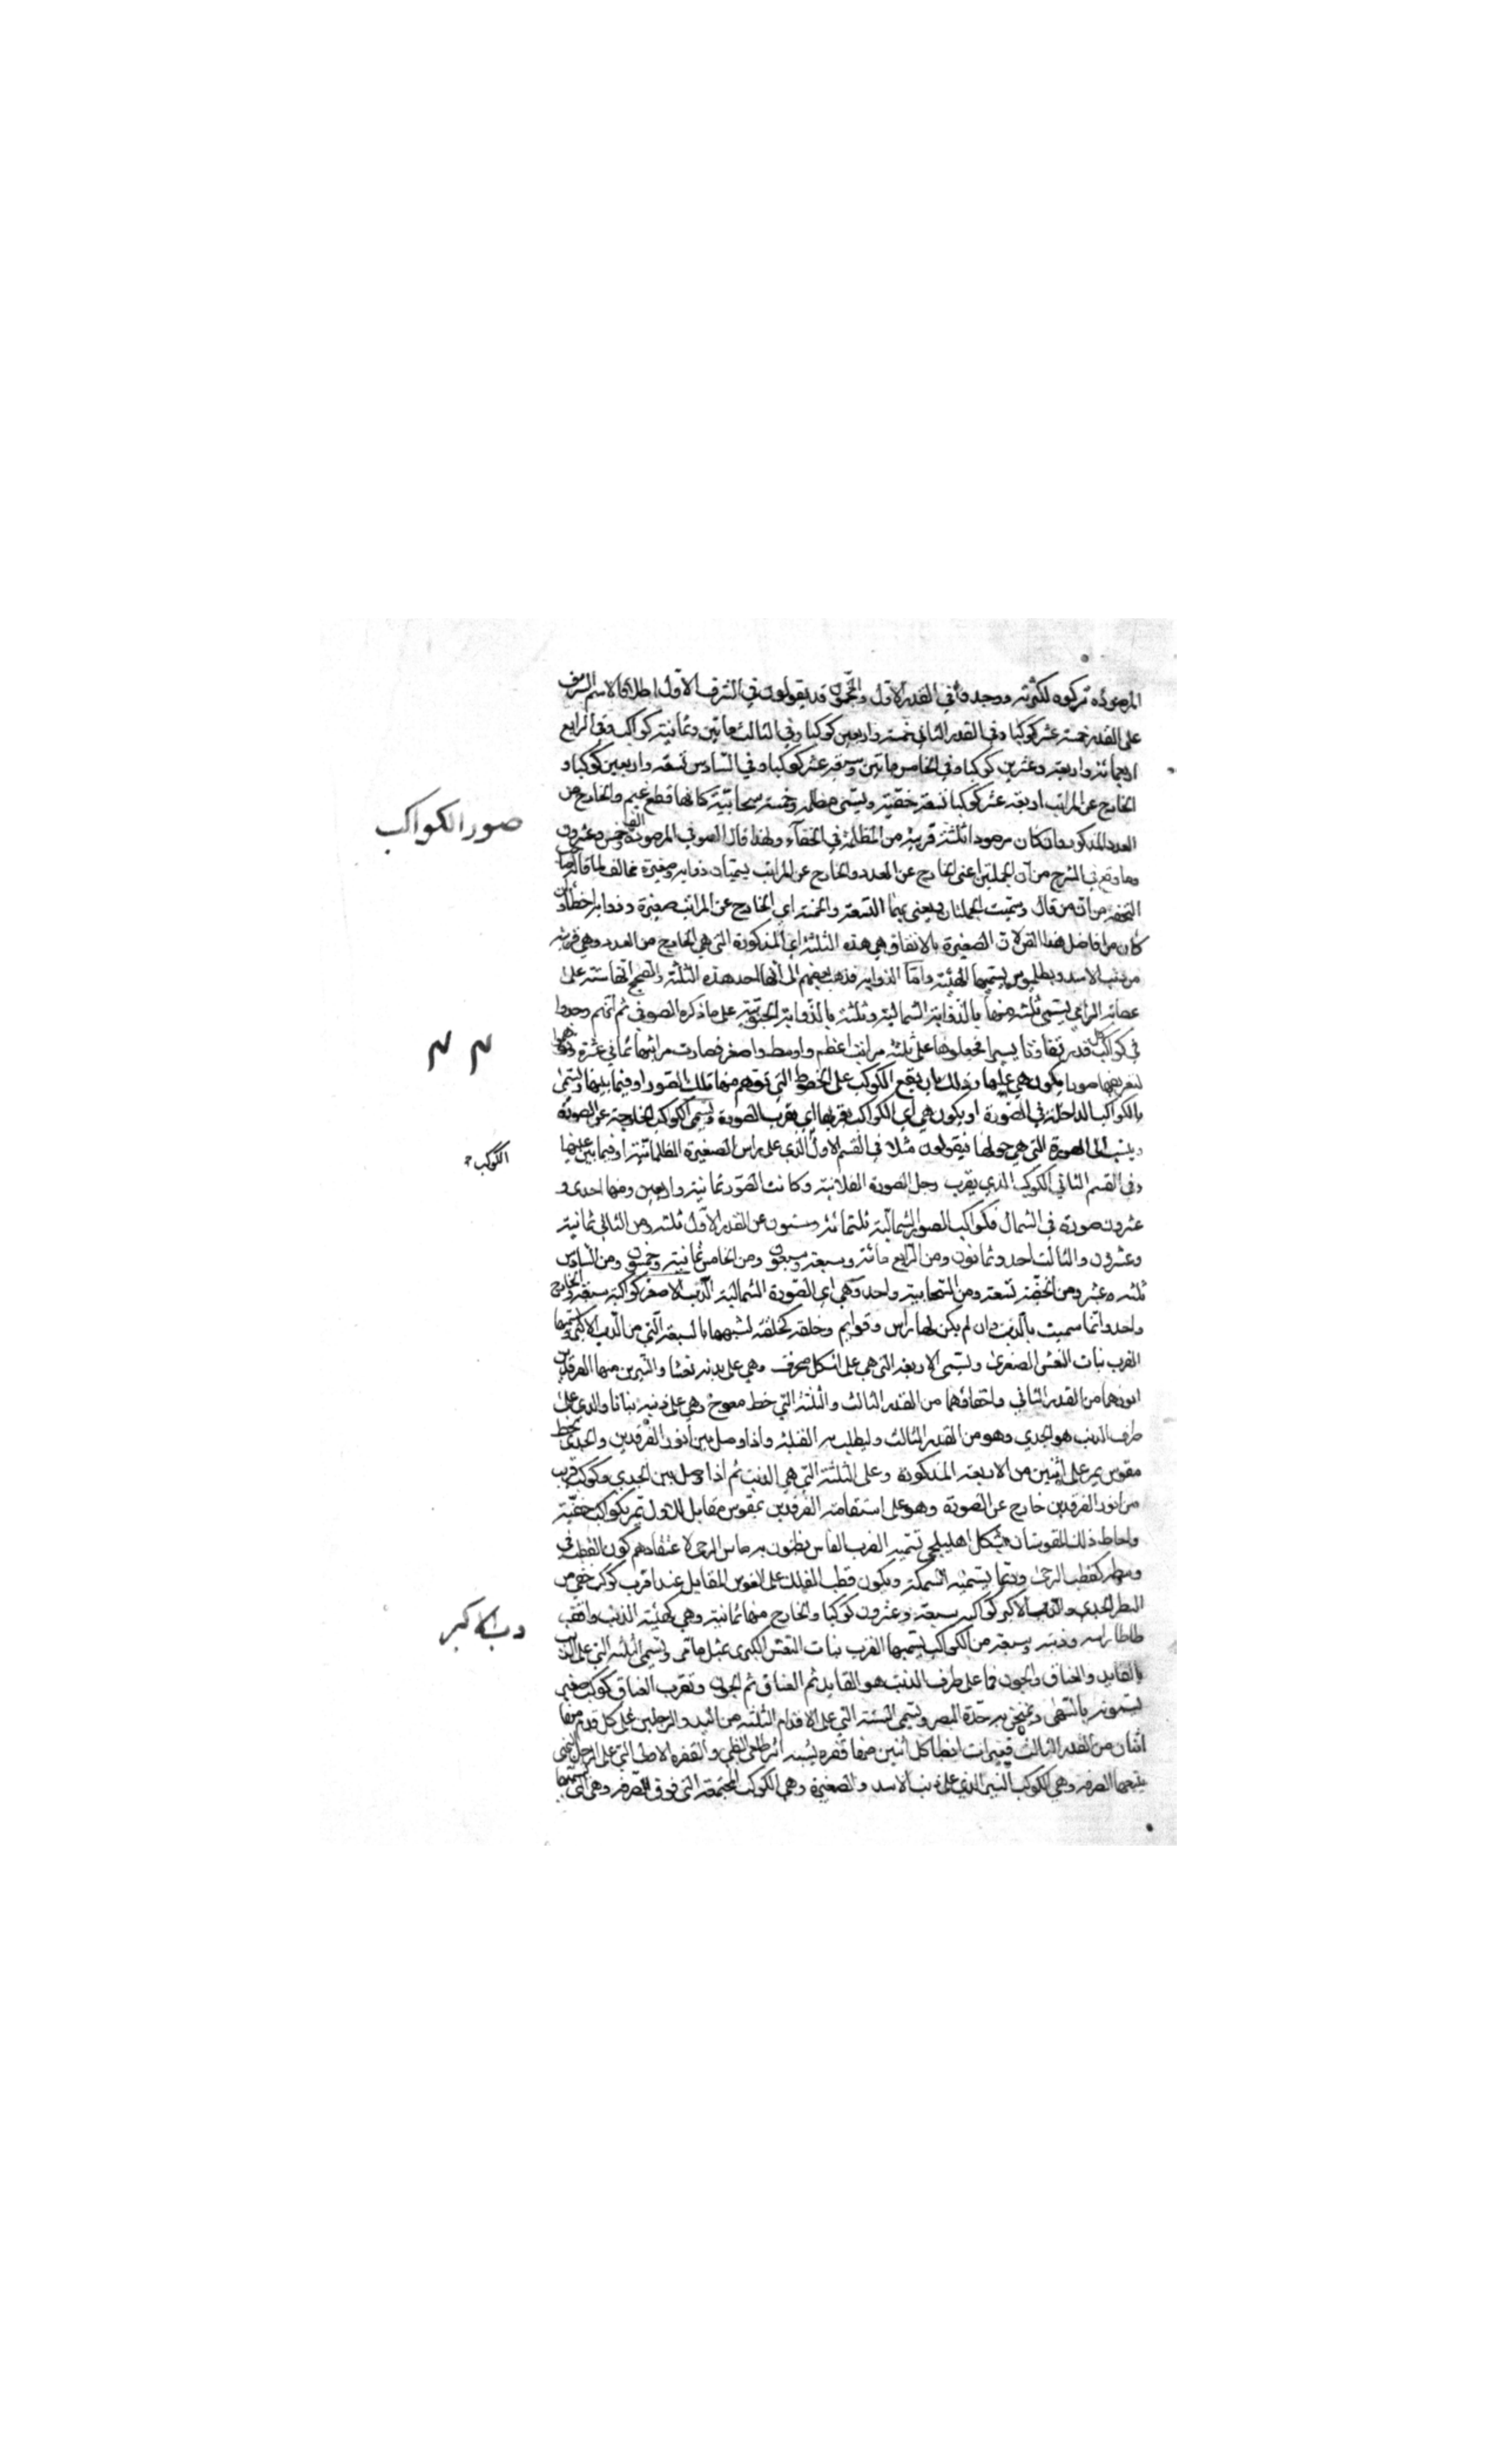 المرصودة تركوه لكثرته ووجدوا في القدر الاول والمحققون قد يقولون في الشرف الاول اطلاقا لاسم الشرف
على القدر خمسة عشر كوكبا وفي القدر الثاني خمسة واربعين كوكبا وفي الثالث ماتين وثمانية كواكب وفي الرابع
اربعمائة واربعة وعشرين كوكبا وفي الخامس ماتين وسبعة عشر كوكبا وفي السادس تسعة واربعين كوكبا و
الخارج عن المراتب اربعة عشر كوكبا تسعة خفيّة ويسمى مظلمة وخمسة سحابيّة كانها قطع غيم والخارج من
العدد المذكور وان كان مرصودا ثلثة قريبة من المظلمة في الخفاء ولهذا قال الصوفي المرصودة الف وخمس وعشرون
وما وقع في الشرح من ان الجملتين اعني الخارج عن العدد والخارج عن المراتب يسميان ذوابة وصغيرة مخالف لما قاله صاحب
التحفة من ان من قال وسميت الجملتان ويعني بهما التسعة والخمسة اي الخارج عن المراتب صغيرة وذوابة اخطأ وان
كان من افاضل هذا الفن لان الصغيرة بالاتفاق هي هذه الثلثة اي المذكورة التي هي الخارج من العدد وهي قريبة
من ذنب الاسد وبطلميوس يسميها الهلبة واما الذوابة فذهب بعضهم الى انها احد هذه الثلثة والصحيح انها ستة على
عصابة الراعي يسمى ثلثة منها بالذوابة الشمالية وثلثة بالذوابة الجنوبية على ما ذكره الصوفي ثم انهم وجدوا
في كواكب كل قدر تفاوتا يسيرا فجعلوها على ثلثة مراتب اعظم واوسط واصغر فصارت مراتبها ثماني عشرة وتوهموا
لتعريفها صورا يكون هي عليها وذلك بان يقع الكوكب على الخطوط التي توهم منها تلك الصور او فيما بينها ويسمى
بالكواكب الداخلة في الصورة او يكون هي اي الكواكب بقربها اي بقرب الصورة ويسمى الكواكب الخارجة عن الصورة
وينسب الى الصورة التي هي حولها فيقولون مثلا في القسم الاول الذي على راس الصغيرة الفلانية او فيما بين عينيها
وفي القسم الثاني الكوكب الذي بقرب رجل الصورة الفلانية وكانت الصور ثمانية واربعين ومنها احدى و
عشرون صورة في الشمال فكواكب الصور الشمالية ثلثمائة وستون عن القدر الاول ثلثة ومن الثاني ثمانية
وعشرون والثالث احد وثمانون ومن الرابع مائة وسبعة وسبعون ومن الخامس ثمانية وخمسون ومن السادس
ثلثة عشر ومن الخفية تسعة ومن السحابية واحد وهي اي الصورة الشمالية الدب الاصغر كواكبه سبعة والخارج
واحد وانما سميت بالدب وان لم يكن لها راس وقوايم وخلقة كخلقته لشبهها بالسبعة التي من الدب الاكبر وتسميها
العرب بنات النعش الصغرى وتسمى الاربعة التي هي على شكل منحرف وهي على بدنه نعشا والنيرين منها الفرقدين
انورهما من القدر الثاني واخفاهما من القدر الثالث والثلثة التي خط معوج وهي على ذنبه بناتا والذي على
طرف الذنب هو الجدي وهو من القدر الثالث وليطلب به القبلة واذا وصل بين انور الفرقدين والجدي بخط
مقوس يمر على اثنين من الاربعة المذكورة وعلى الثلثة التي هي الذنب ثم اذا وصل بين الجدي وكوكب قريب
من انور الفرقدين خارج عن الصورة وهو على استقامة الفرقدين بمقوس مقابل للاول يمر بكواكب خفية
واحاط ذلك القوسان بشكل اهليلجي تسميه العرب الفاس يظنون به فاس الرحى لاعتقادهم كون القطب في
وسطه كقطب الرحى وربما يسميه السمكة ويكون قطب الفلك على القوس المقابل عند اقرب كوكب خفي من
السطر الجدي والدب الاكبر كواكبه سبعة وعشرون كوكبا والخارج منها ثمانية وهي كهيئة الدب واقف
طاطا راسه وذنبه وسبعة من الكواكب يسميها العرب بنات النعش الكبرى بمثل ما مر ويسمى الثلثة التي على الذنب
بالقايد والعناق والجون فما على طرف الذنب هو القايد ثم العناق ثم الجون وبقرب العناق كوكب صغير
يسمونه بالسهى ويمتحن به حدة البصر ويسمى الستة التي على الاقدام الثلثة من اليد والرجلين على كل قدم منها
اثنان من القدر الثالث قفزات الظبا كل اثنين منها قفزة يشبه اثر ظلفي الظبي والقفزة الاولى التي على الرجل اليمنى
يتبعها الصرفة وهي الكوكب النير الذي على ذنب الاسد والصغيرة وهي الكواكب المجتمعة التي فوق الصرفة وهي التي يسميها
صور الكواكب
الكوكب
دب الاكبر